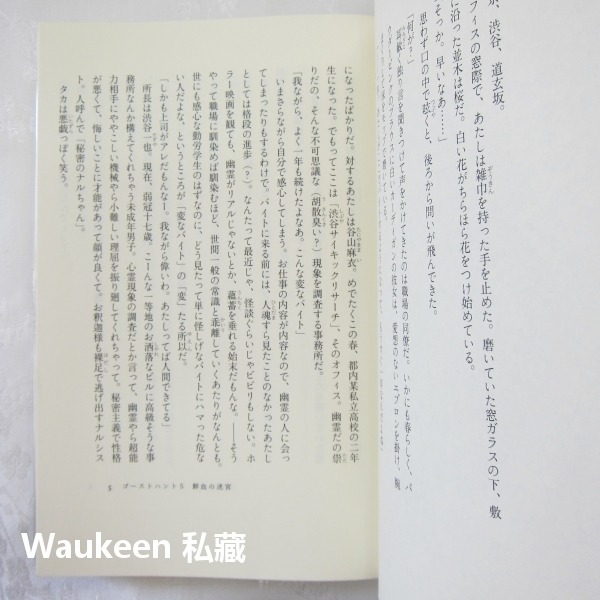 、渋谷、道玄坂。
フィスの窓際で、あたしは雑巾を持った手を止めた。磨いていた窓ガラスの下、敷
に沿った並木は桜だ。白い花がちらほら花をつけ始めている。
そっか。早いなあ……」
思わず口の中で呟くと、後ろから問いが飛んできた。
「何が？」
耳敏く独り言を聞きつけて声をかけてきたのは職場の同僚だ。いかにも春らしく、パ
カーディガンの彼女は、愛想のないエプロンを掛け、腕
になったばかりだ。対するあたしは谷山麻衣。めでたくこの春、都内某私立高校の二年
生になった。でもってここは「渋谷サイキックリサーチ」、そのオフィス。幽霊だの祟
りだの、そんな不可思議な（胡散臭い？）現象を調査する事務所だ。
「我ながら、よく一年も続けたよなあ。こんな変なバイト」
いまさらながら自分で感心してしまう。お仕事の内容が内容なので、幽霊の人に会っ
てしまったりもするわけで。バイトに来る前には、人魂すら見たことのなかったあたし
としては格段の進歩（？）。なんたって最近じゃ、怪談ぐらいじゃビビりもしない。ホ
ラー映画を観ても、幽霊がリアルじゃないとか、蘊蓄を垂れる始末だもんな。――そう
やって職場に馴染めば馴染むほど、世間一般の常識と乖離していくあたりがなんとも。
世にも感心な勤労学生のはずなのに、どう見たって単に怪しげなバイトにハマった危な
い人だよな、というところが「変なバイト」の「変」たる所以だ。
「しかも上司がアレだもんなー。我ながら偉いわ。あたしってば人間できてる」
所長は渋谷一也。現在、弱冠十七歳。こーんな一等地のお洒落なビルに高級そうな事
務所なんか構えてくれちゃう未成年男子。心霊現象の調査だとか言って、幽霊やら超能
力相手にややこしい機械やら小難しい理屈を振り廻してくれちゃって。秘密主義で性格
が悪くて、悔しいことに才能があって顔が良くて。お釈迦様も裸足で逃げ出すナルシス
ト。人呼んで「秘密のナルちゃん」。
タカは悪戯っぽく笑う。
5　ゴーストハント5　鮮血の迷宮
Waukeen 私藏